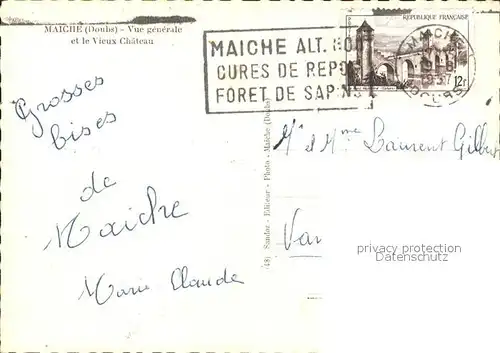 MAICHE (Doubs) – Vue générale
et le Vieux Château
MAICHE ALT. 800
CURES DE REPOS
FORET DE SAPINS
REPUBLIQUE FRANÇAISE
MAICHE
1957
DOUBS
12F
Grosses
bises
de
Maiche
Marie Claude
Mr et Mme Laurent Gilbert
Var
Sander - Editeur - Photo - Maiche (Doubs)
privacy protection
Datenschutz